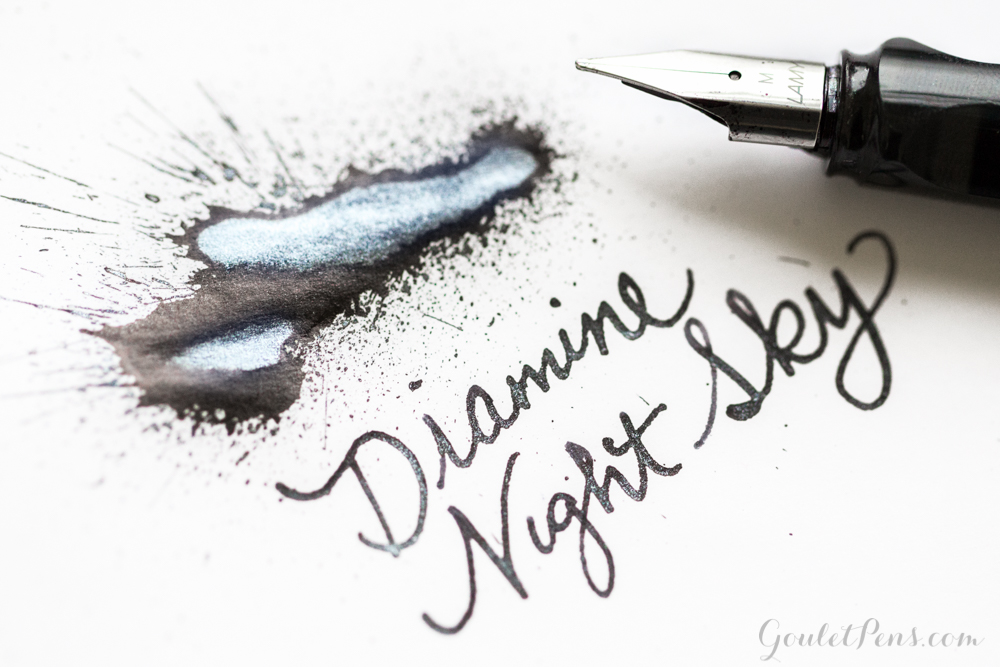 M
LAMY
Diamine
Night Sky
GouletPens.com